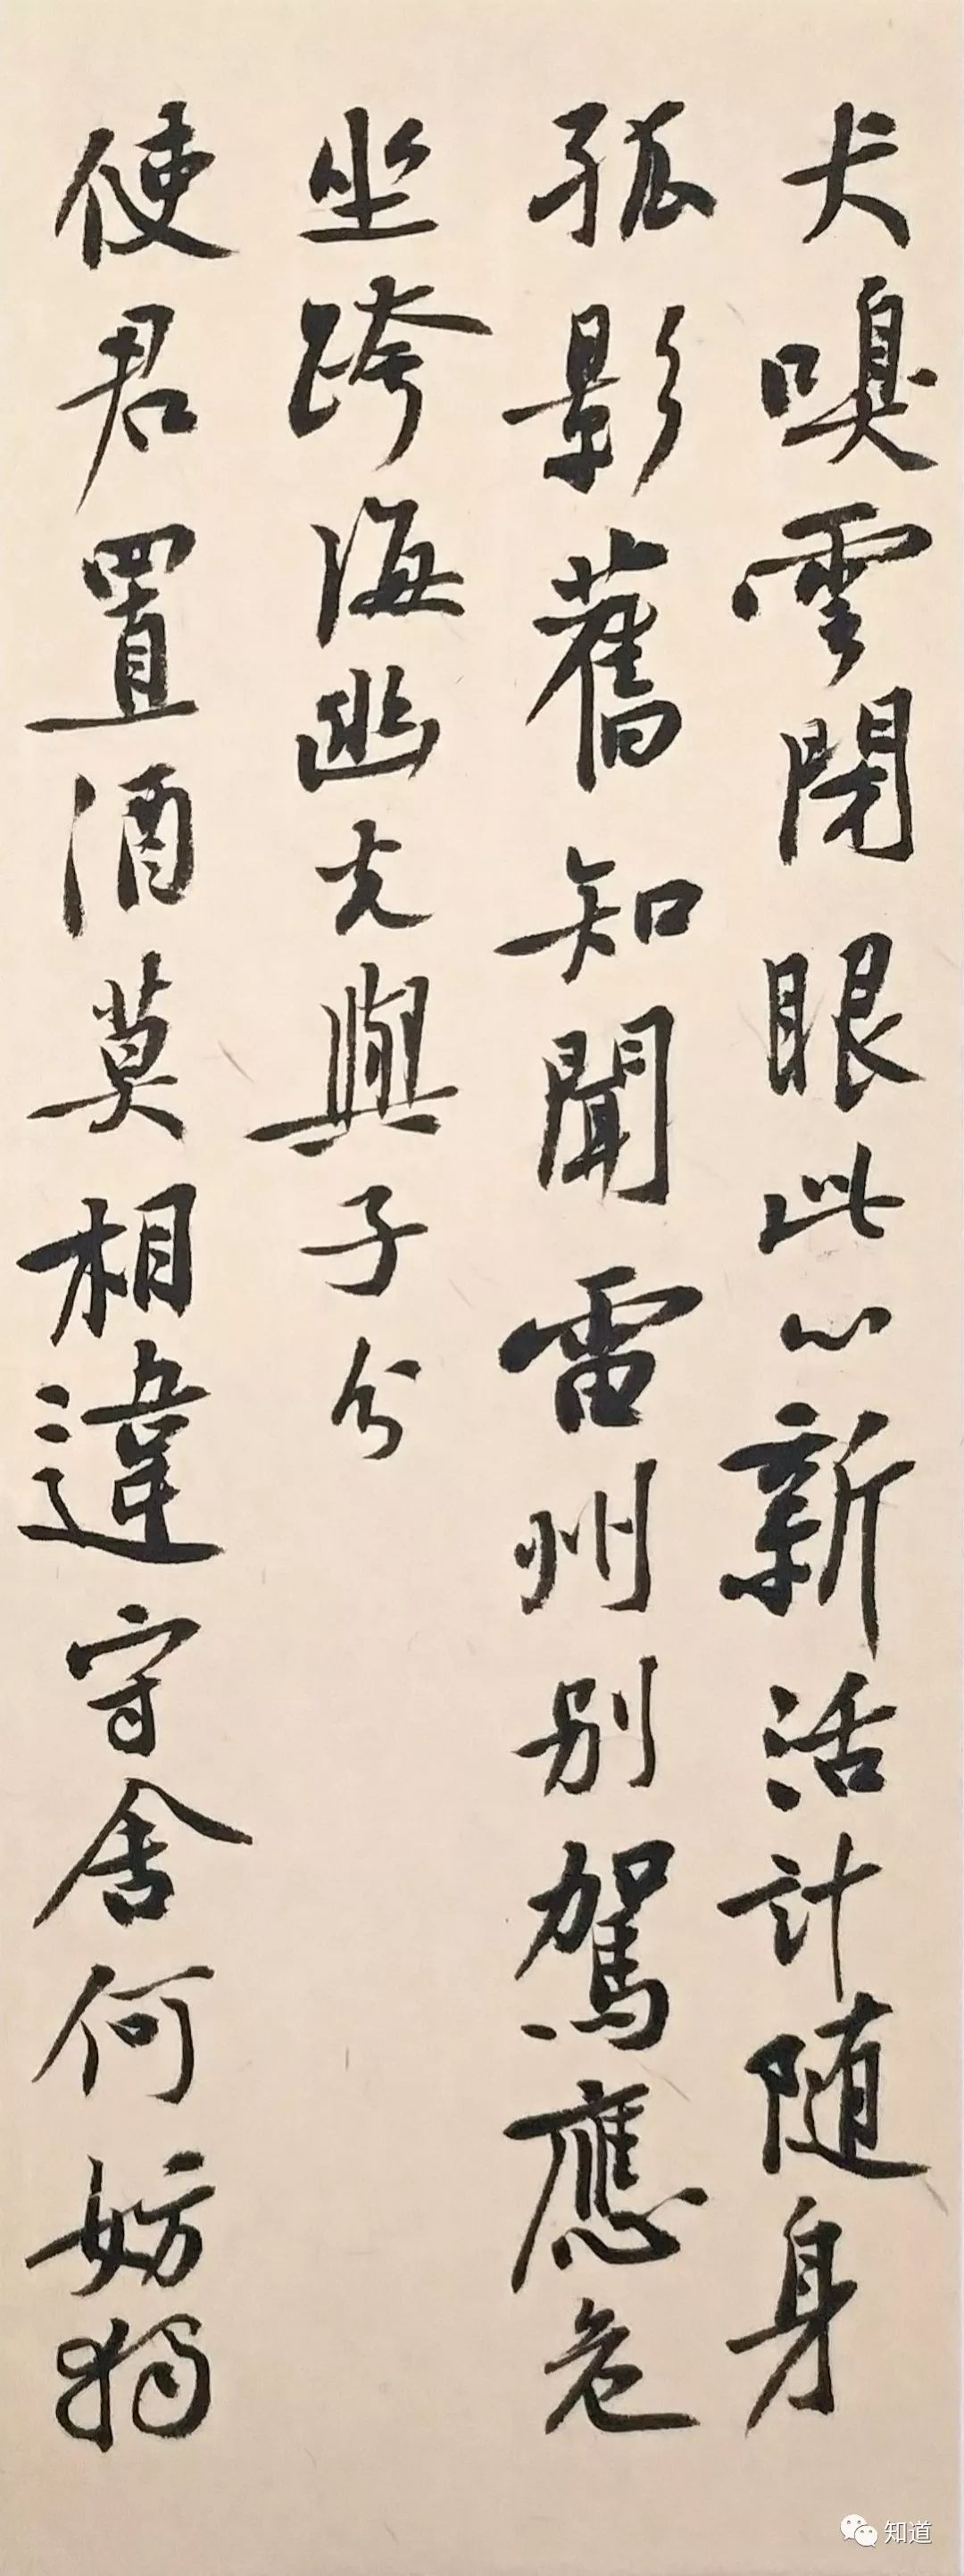 犬嗅雲閉眼此心新活計随身
孤影舊知聞雷州别駕應危
坐跨海幽光與子分
使君置酒莫相違守舍何妨獨
知道